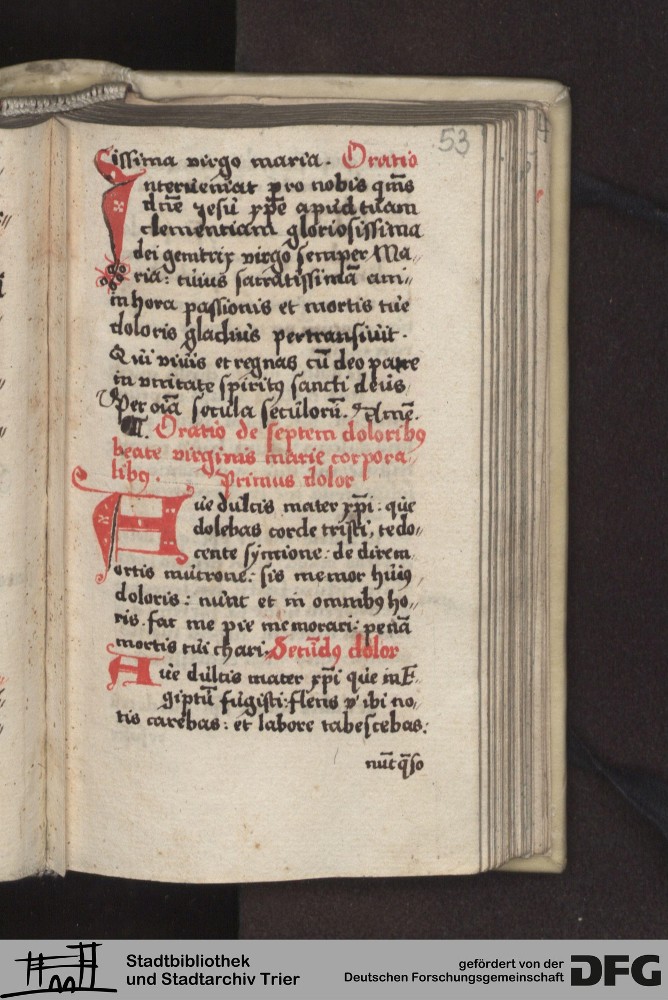 53
sissima virgo maria. Oratio
Interveniat pro nobis qm̄s
dn̄e iesu xp̄e apud tuam
clementiam gloriosissima
dei genitrix virgo semper Ma„
ria: cuius sacratissimā ani„
in hora passionis et mortis tue
doloris gladius pertransiuit.
Qui viuis et regnas cū deo patre
in vnitate spiritꝯ sancti deus
Per oīa secula seculorū. Amē.
Oratio de septem doloribꝯ
beate virginis marie corpora„
libꝯ. Primus dolor
Aue dulcis mater xp̄i: que
dolebas corde tristi, te do„
cente symione: de dire m
ortis mucrone: sis memor huiꝯ
doloris: nunc et in omnibꝯ ho„
ris. fac me pie memorari: penā
mortis tui chari. Secūdꝯ dolor
Aue dulcis mater xp̄i que in E„
giptū fugisti: flens ibi no„
tis carebas: et labore tabescebas:
nūc q̄so
Stadtbibliothek
und Stadtarchiv Trier
gefördert von der
Deutschen Forschungsgemeinschaft
DFG